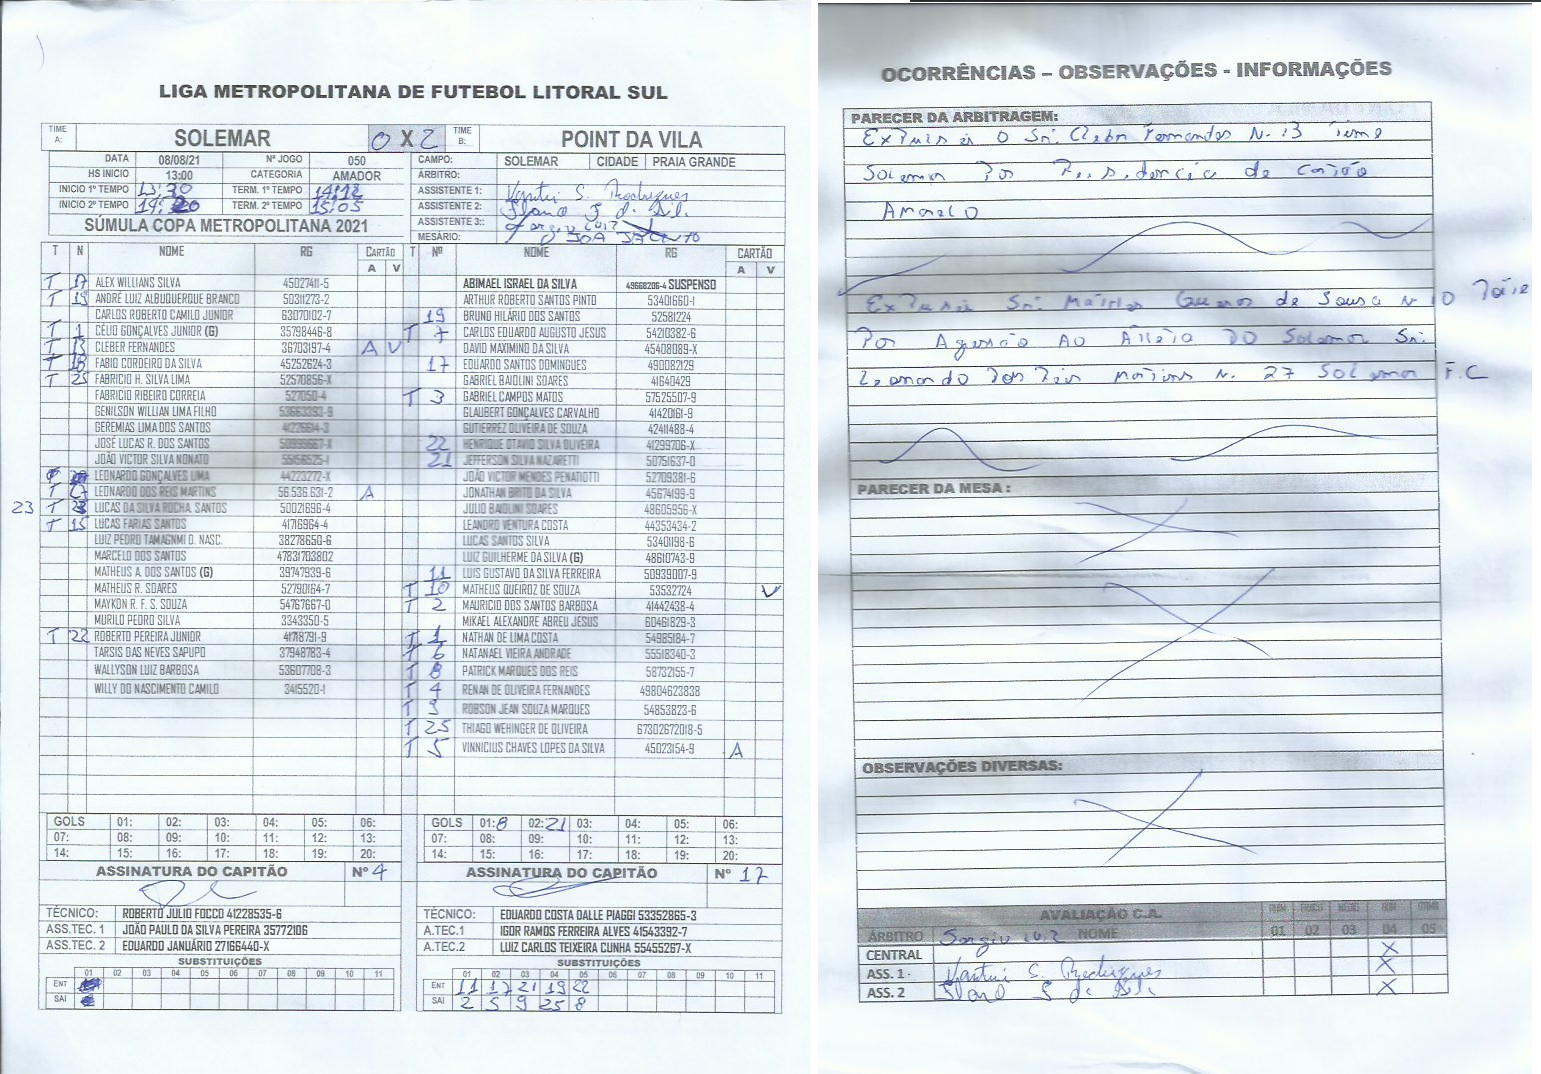 LIGA METROPOLITANA DE FUTEBOL LITORAL SUL
TIME A: SOLEMAR 0 X 2 TIME B: POINT DA VILA
DATA 08/08/21 Nº JOGO 050 CAMPO: SOLEMAR CIDADE PRAIA GRANDE
HS INICIO 13:00 CATEGORIA AMADOR ÁRBITRO:
INICIO 1º TEMPO 13:30 TERM. 1º TEMPO 14:12 ASSISTENTE 1: S. Rodrigues
INICIO 2º TEMPO 14:20 TERM. 2º TEMPO 15:05 ASSISTENTE 2:
SÚMULA COPA METROPOLITANA 2021 ASSISTENTE 3::
MESÁRIO:
T N NOME RG CARTÃO A V
T 17 ALEX WILLIANS SILVA 45027411-5
T 19 ANDRÉ LUIZ ALBUQUERQUE BRANCO 50311273-2
CARLOS ROBERTO CAMILO JUNIOR 63070102-7
T 1 CÉLIO GONÇALVES JUNIOR (G) 35798446-8
T 13 CLEBER FERNANDES 36703197-4 A V
T 18 FABIO CORDEIRO DA SILVA 45252624-3
T 25 FABRICIO H. SILVA LIMA 52570856-X
FABRICIO RIBEIRO CORREIA 527050-4
GENILSON WILLIAN LIMA FILHO 53663393-9
GEREMIAS LIMA DOS SANTOS
JOSÉ LUCAS R. DOS SANTOS
JOÃO VICTOR SILVA NONATO 55156525-1
LEONARDO GONÇALVES LIMA 44223272-X
T 27 LEONARDO DOS REIS MARTINS 56.536.631-2 A
23 T LUCAS DA SILVA ROCHA SANTOS 50021696-4
T 15 LUCAS FARIAS SANTOS 41716964-4
LUIZ PEDRO TAMAGNMI D. NASC. 38278650-6
MARCELO DOS SANTOS 47831703802
MATHEUS A. DOS SANTOS (G) 39747939-6
MATHEUS R. SOARES 52790164-7
MAYKON R. F. S. SOUZA 54767667-0
MURILO PEDRO SILVA 3343350-5
T 22 ROBERTO PEREIRA JUNIOR 41718791-9
TARSIS DAS NEVES SAPUPO 37948783-4
WALLYSON LUIZ BARBOSA 53607708-3
WILLY DO NASCIMENTO CAMILO 3415520-1
T Nº NOME RG CARTÃO A V
ABIMAEL ISRAEL DA SILVA 49668206-4 SUSPENSO
ARTHUR ROBERTO SANTOS PINTO 53401660-1
19 BRUNO HILÁRIO DOS SANTOS 52581224
T 7 CARLOS EDUARDO AUGUSTO JESUS 54210382-6
DAVID MAXIMINO DA SILVA 45408089-X
17 EDUARDO SANTOS DOMINGUES 490082129
GABRIEL BAIOLINI SOARES 41640429
T 3 GABRIEL CAMPOS MATOS 57525507-9
GLAUBERT GONÇALVES CARVALHO 41420161-9
GUTIERREZ OLIVEIRA DE SOUZA 42411488-4
22 HENRIQUE OTAVIO SILVA OLIVEIRA 41299706-X
21 JEFFERSON SILVA NAZARETTI 50751637-0
JOÃO VICTOR MENDES PENATIOTTI 52709381-6
JONATHAN BRITO DA SILVA 45674199-9
JULIO BAIOLINI SOARES 48605956-X
LEANDRO VENTURA COSTA 44353434-2
LUCAS SANTOS SILVA 53401198-6
LUIZ GUILHERME DA SILVA (G) 48610743-9
11 LUIS GUSTAVO DA SILVA FERREIRA 50939007-9
T 10 MATHEUS QUEIROZ DE SOUZA 53532724 V
T 2 MAURICIO DOS SANTOS BARBOSA 41442438-4
MIKAEL ALEXANDRE ABREU JESUS 60461829-3
T 1 NATHAN DE LIMA COSTA 54985184-7
T 6 NATANAEL VIEIRA ANDRADE 55518340-3
T 8 PATRICK MARQUES DOS REIS 58732155-7
T 4 RENAN DE OLIVEIRA FERNANDES 49804623838
T 9 ROBSON JEAN SOUZA MARQUES 54853823-6
T 25 THIAGO WEHINGER DE OLIVEIRA 67302672018-5
T 5 VINNICIUS CHAVES LOPES DA SILVA 45023154-9 A
GOLS 01: 02: 03: 04: 05: 06:
07: 08: 09: 10: 11: 12: 13:
14: 15: 16: 17: 18: 19: 20:
GOLS 01: 8 02: 21 03: 04: 05: 06:
07: 08: 09: 10: 11: 12: 13:
14: 15: 16: 17: 18: 19: 20:
ASSINATURA DO CAPITÃO Nº 4
ASSINATURA DO CAPITÃO Nº 17
TÉCNICO: ROBERTO JULIO FOCCO 41228535-6
ASS.TEC. 1 JOÃO PAULO DA SILVA PEREIRA 35772106
ASS.TEC. 2 EDUARDO JANUÁRIO 27166440-X
TÉCNICO: EDUARDO COSTA DALLE PIAGGI 53352865-3
A.TEC.1 IGOR RAMOS FERREIRA ALVES 41543392-7
A.TEC.2 LUIZ CARLOS TEIXEIRA CUNHA 55455267-X
SUBSTITUIÇÕES
01 02 03 04 05 06 07 08 09 10 11
ENT
SAI
SUBSTITUIÇÕES
01 02 03 04 05 06 07 08 09 10 11
ENT 11 17 21 19 22
SAI 2 5 9 25 8
OCORRÊNCIAS – OBSERVAÇÕES - INFORMAÇÕES
PARECER DA ARBITRAGEM:
Expulsei O Sr. Cleber Fernandes N. 13 Time
Solemar Por Reisidencia de Cartão
Amarelo
Expulsei Sr. Mathes Queiros de Sousa N 10
Por Agressão Ao Atleta DO Solemar Sr.
Leonardo Dos Reis Martins N. 27 Solemar F.C
PARECER DA MESA :
OBSERVAÇÕES DIVERSAS:
AVALIAÇÃO C.A. RUIM FRACO MÉDIO BOM ÓTIMO
ÁRBITRO NOME 01 02 03 04 05
CENTRAL Sergio Luiz X
ASS. 1 - S. Rodrigues X
ASS. 2 X